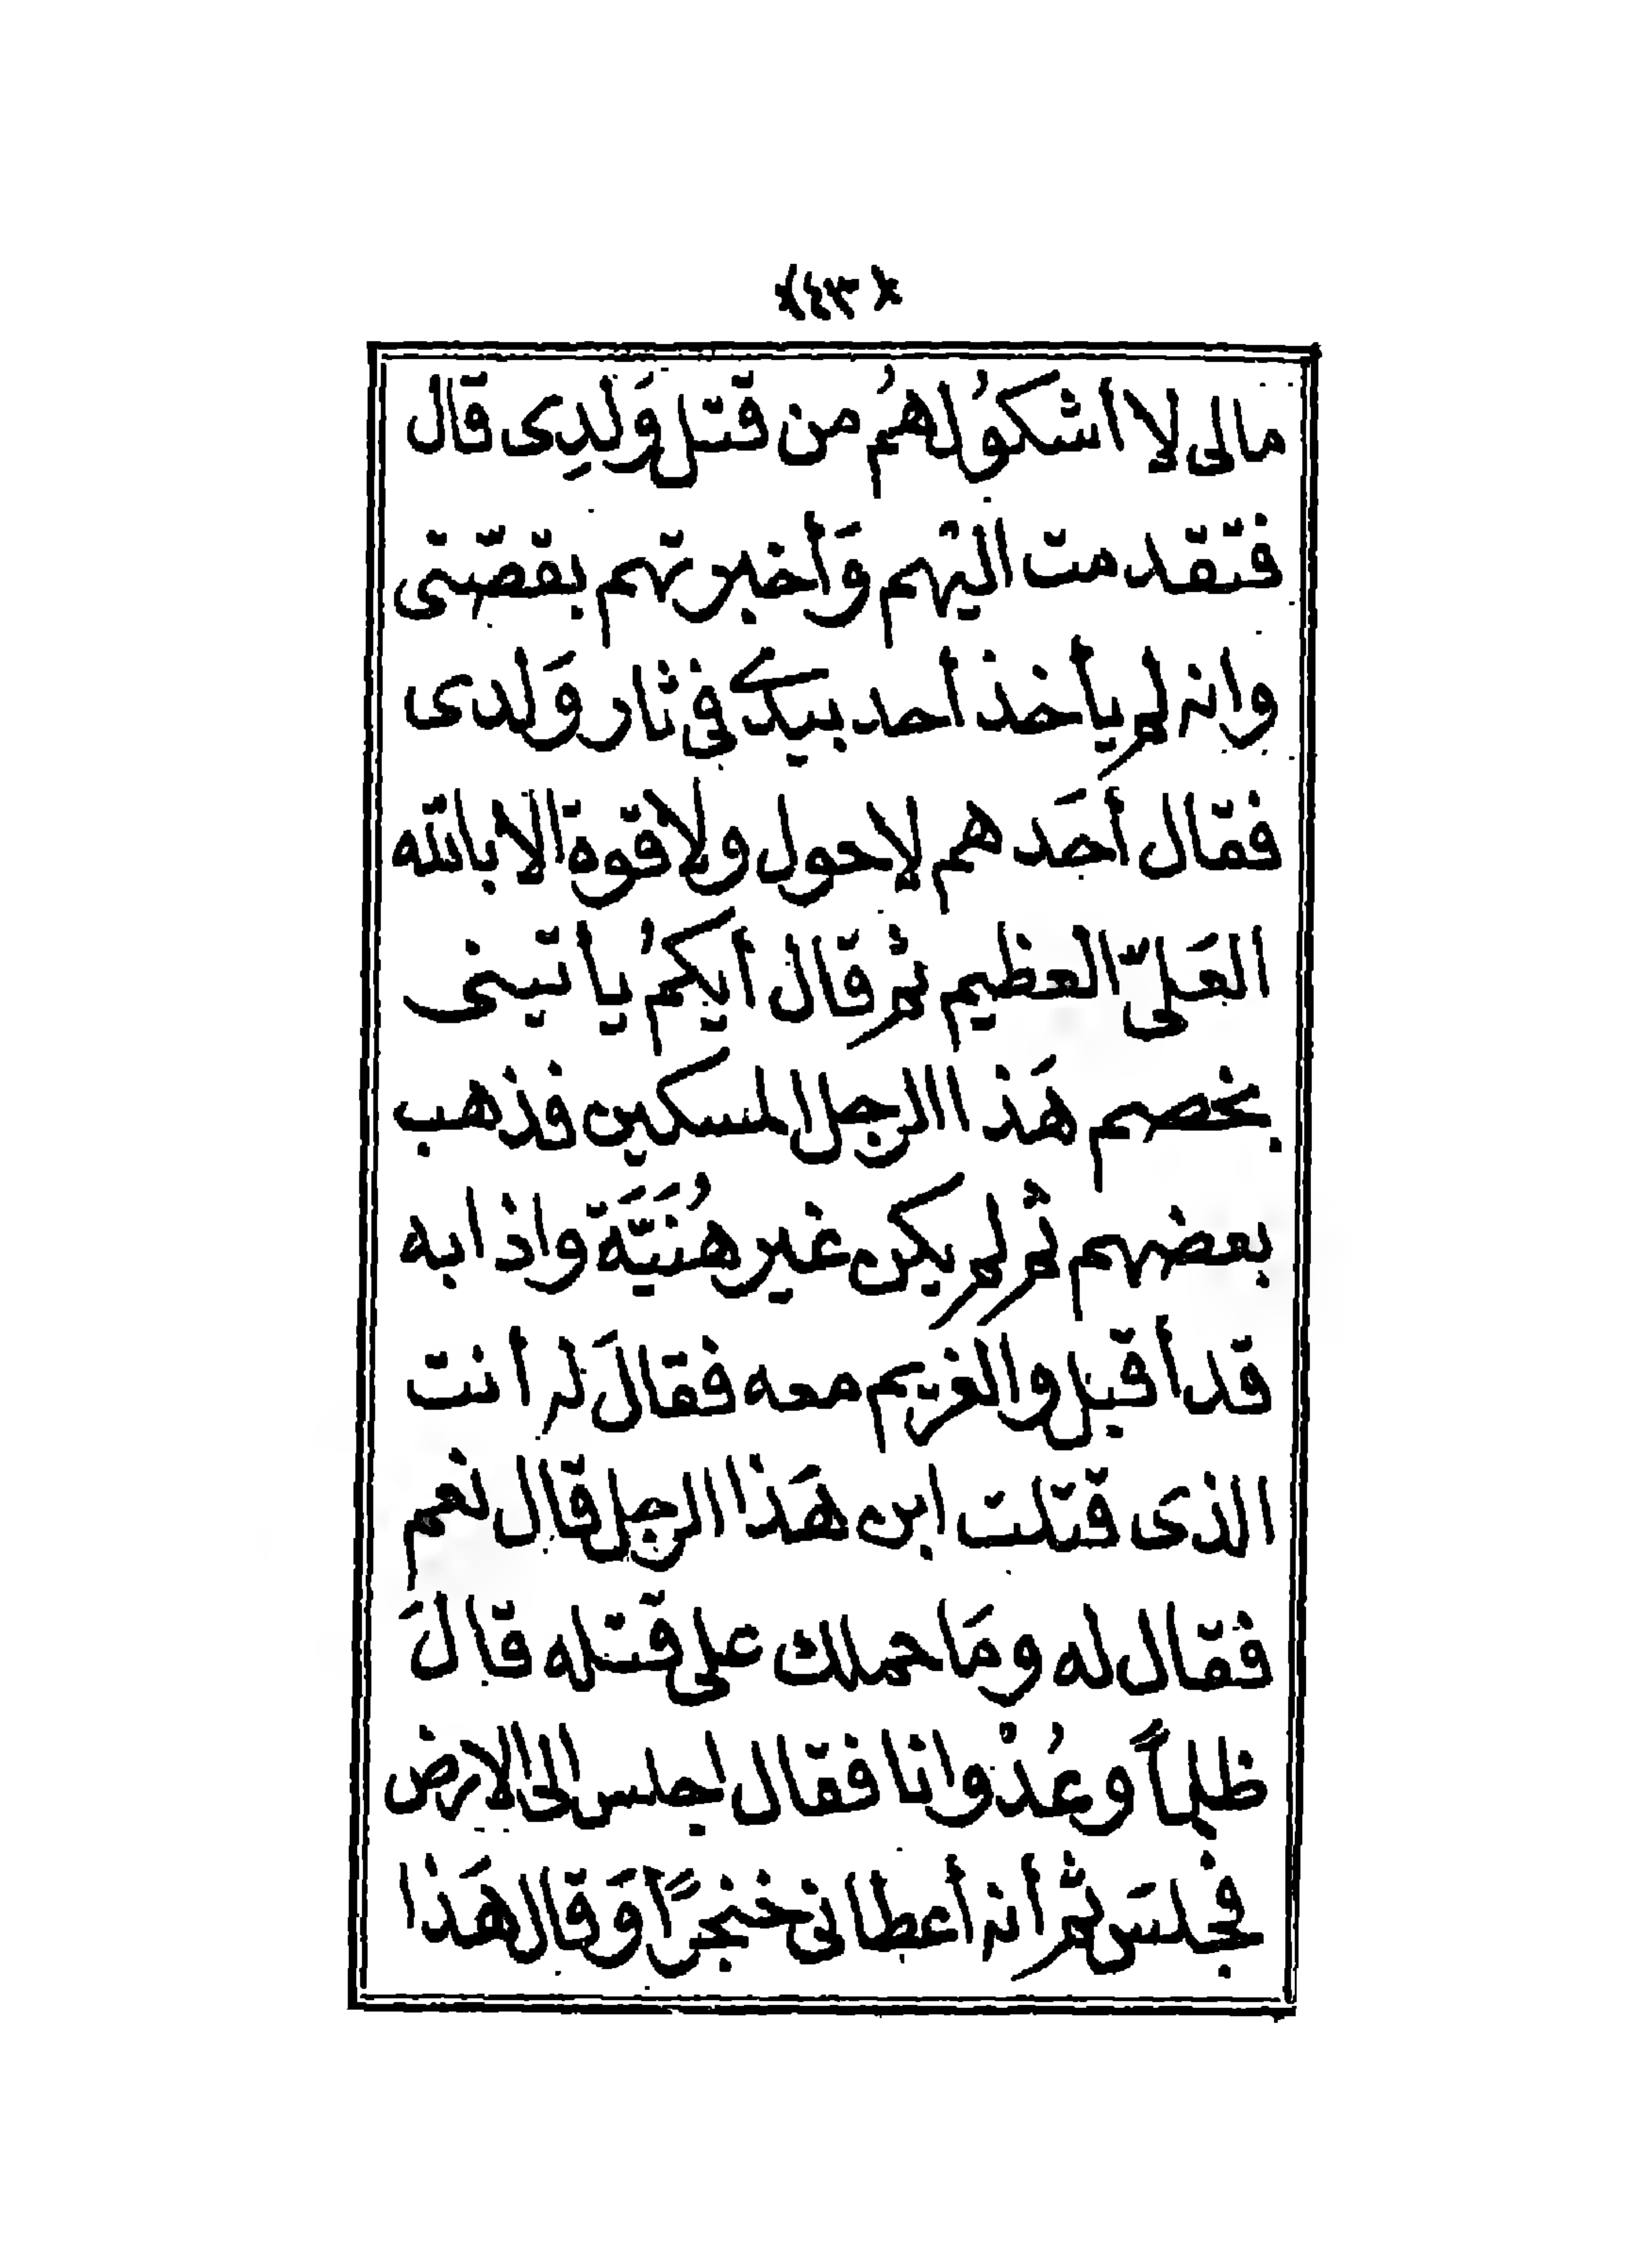 ﴿٤٣﴾
مالى لا أشكوُ لهُم من قتل وَلدِى قال
فتقدمت اليْهم وَأخبرتهم بقصّتى
وانه لم يأخذ أحد بيدى فى ثار وَلدى
فقال أحَدهم لاحول ولاقوة الا بالله
العَلىّ العظيم ثم قال أيكمُ يأتينى
بخصم هَذا الرجل المسكين فذهب
بعضهم ثم لم يكن غير هُنَيَّة واذا به
قد أقبل والغريم معه فقالَ له أنت
الذى قتلت ابن هَذا الرجل قال نعم
فقال له ومَا حملك على قتله قالَ
ظلماً وعُدْوانا فقال اجلس الى الارض
فجلسَ ثم أنه أعطانى خنجرًا وَقال هَذا